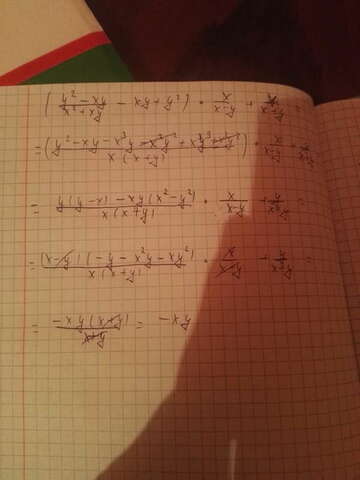 ( y² - xy / x² + xy - xy + y² ) · x / x-y + x / x+y
= ( y² - xy - x³y - x²y² + x²y² + xy³ / x(x+y) ) · x / x-y +
= y(y-x) - xy(x² - y²) / x(x+y) · x / x-y + y / x+y =
= (x-y)(-y - x²y - xy²) / x(x+y) · x / x-y + y / x+y =
= -xy(x+y) / x+y = -xy